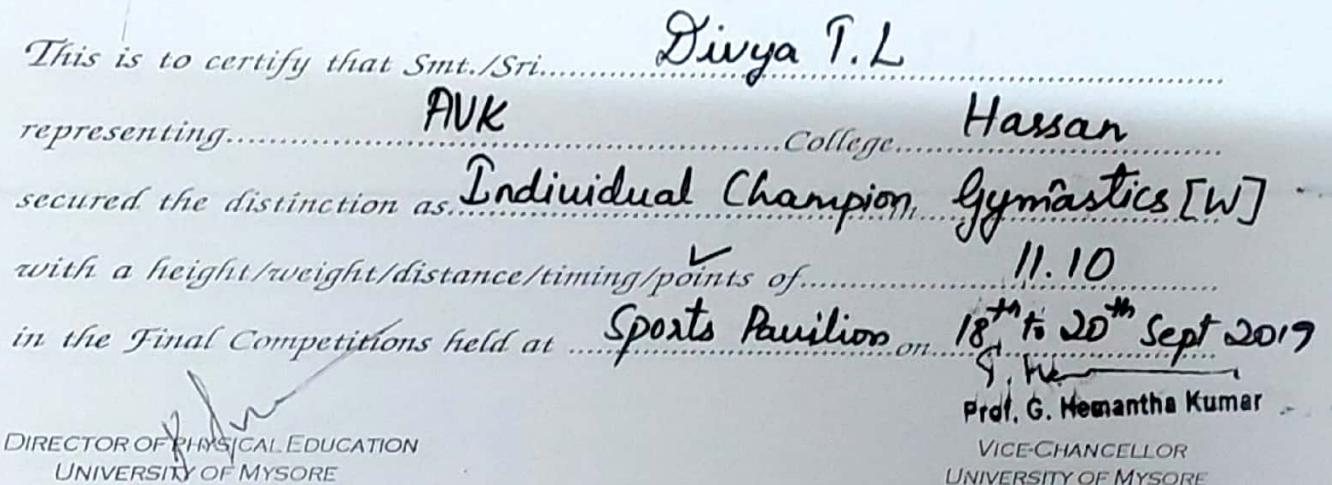 This is to certify that Smt./Sri.......Divya T.L.......
representing.......AVK.......College.......Hassan.......
secured the distinction as.Individual Champion, Gymnastics [W]
with a height/weight/distance/timing/points of.......11.10.......
in the Final Competitions held at .......Sports Pavilion on 18th to 20th Sept 2019
Prof. G. Hemantha Kumar
DIRECTOR OF PHYSICAL EDUCATION
UNIVERSITY OF MYSORE
VICE-CHANCELLOR
UNIVERSITY OF MYSORE